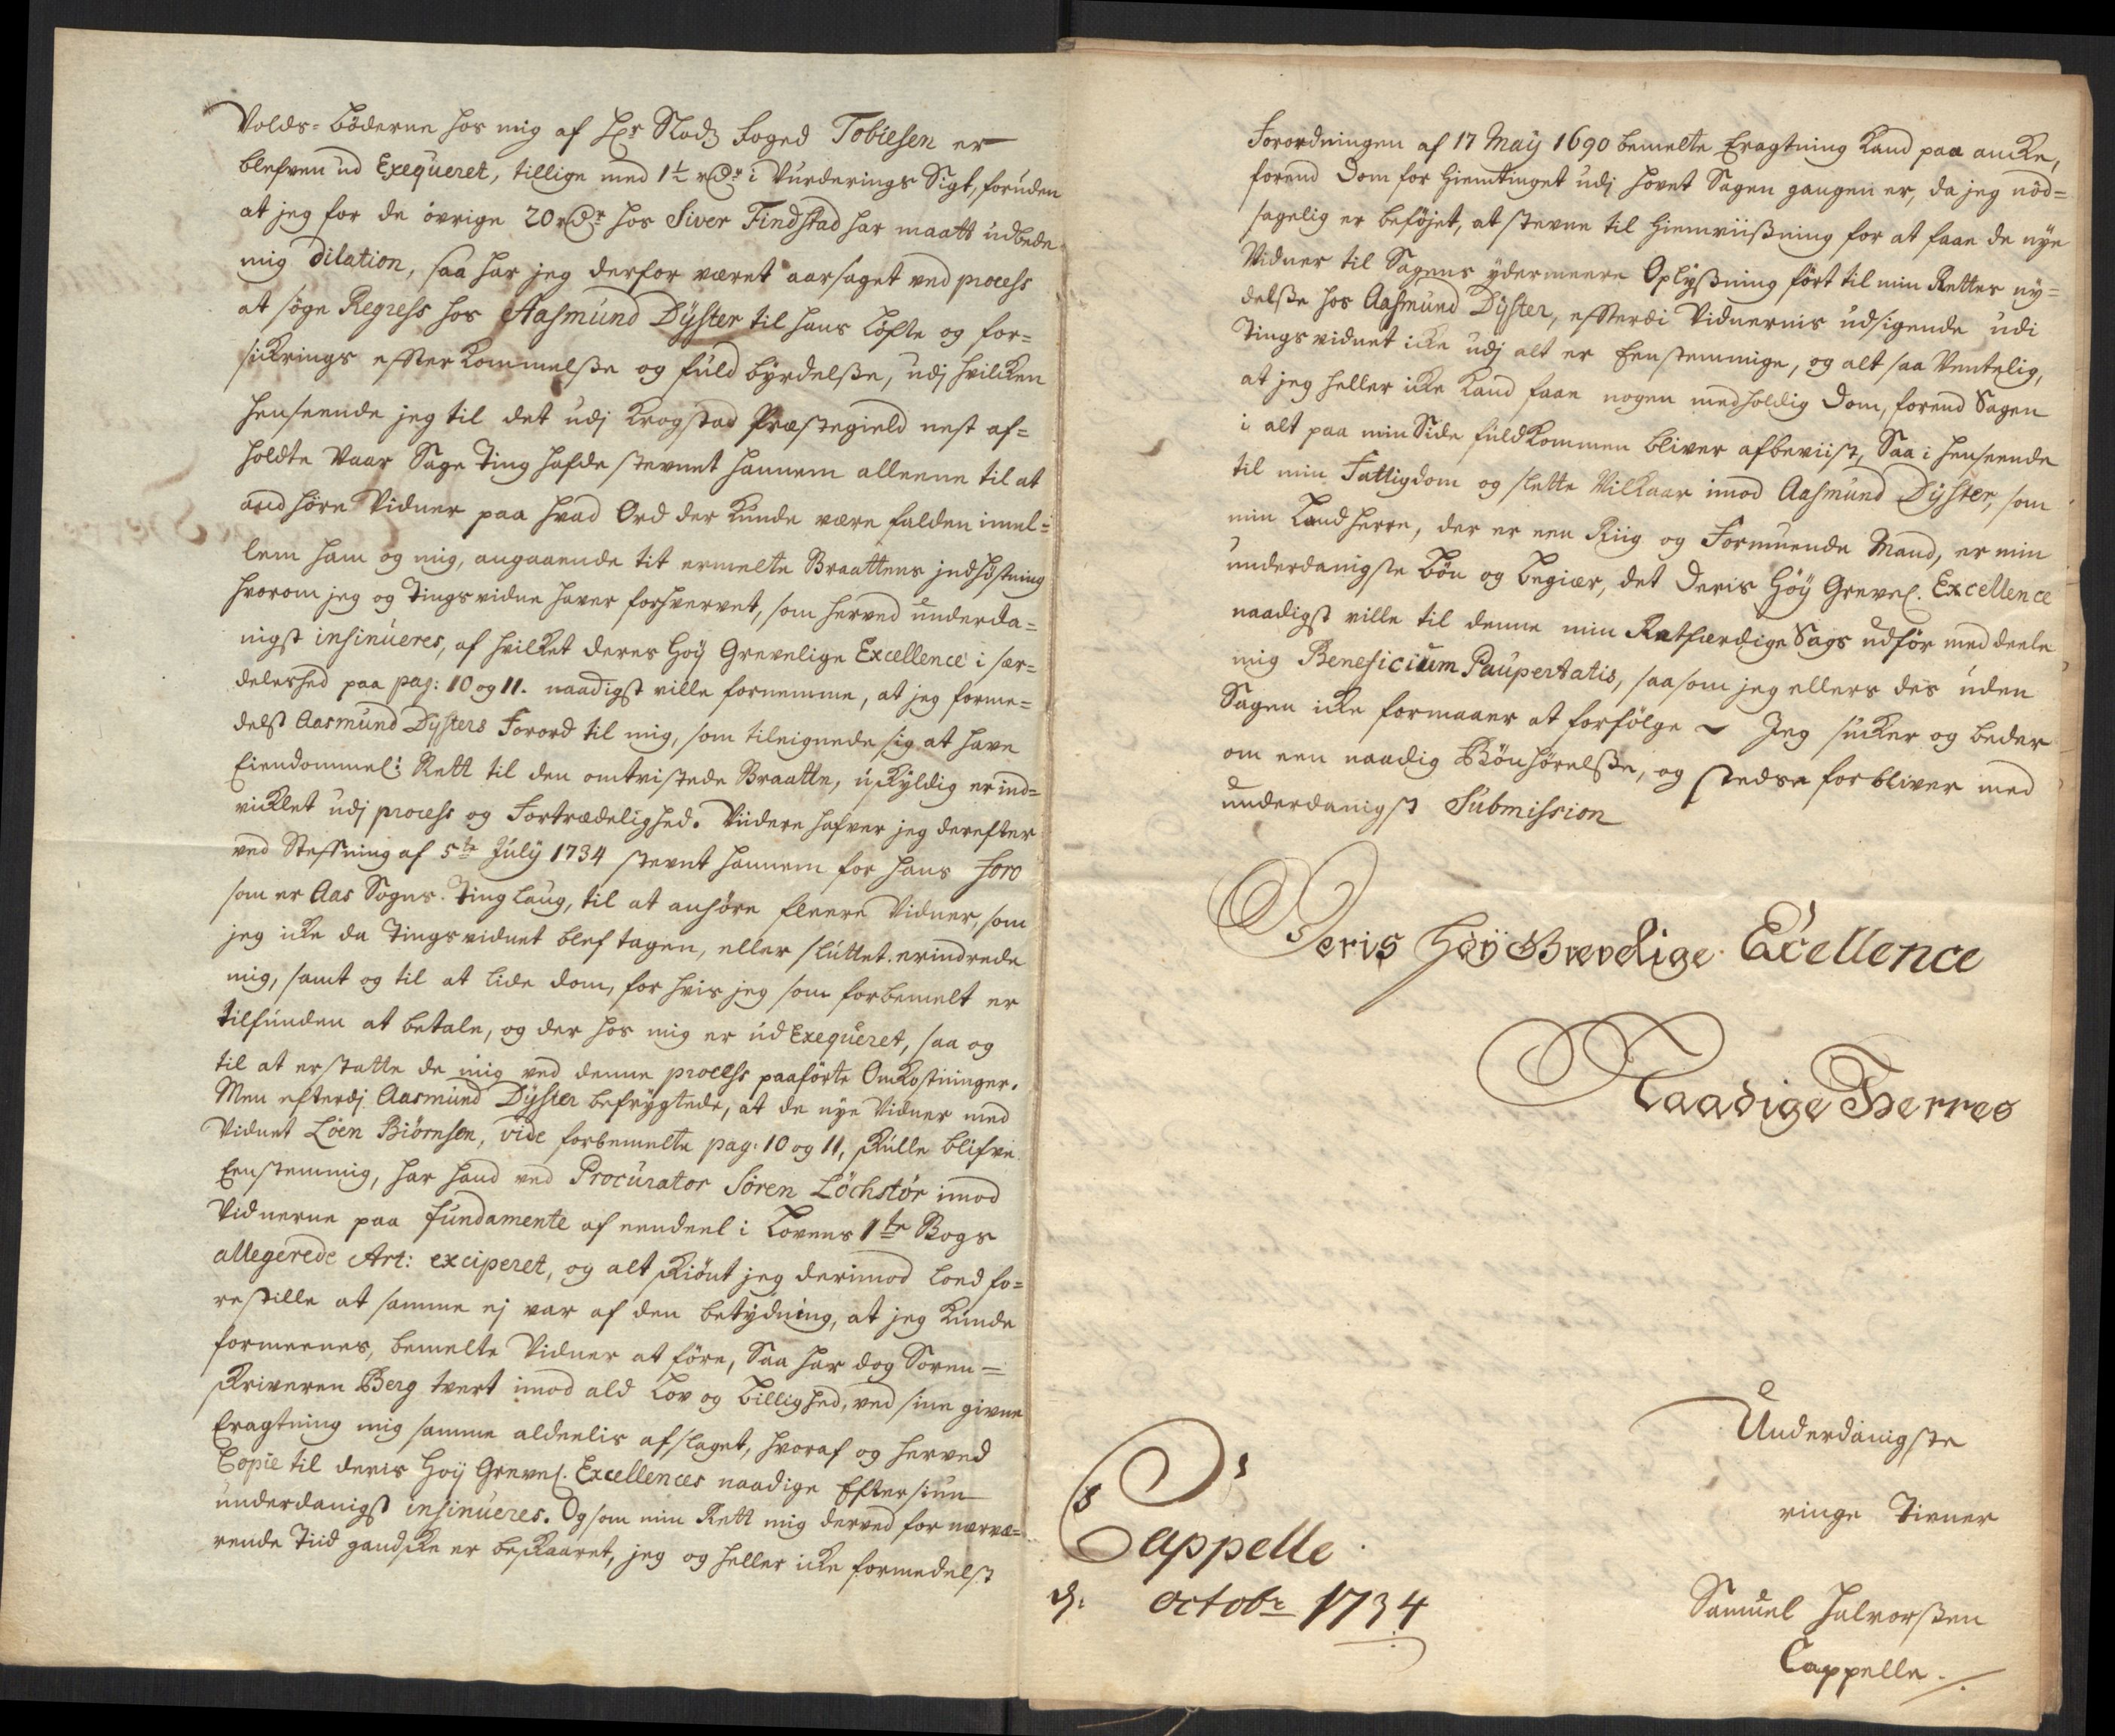 Volds-Böderne hos mig af Hr Slodz foged Tobiesen er
blefven ud Exequeret, tillige med 1½ rdr i Vurderings Sigt, foruden
at jeg for de övrige 20 rdr hos Siver Findstad har maatt udbede
mig dilation, saa har jeg derfor været aarsaget ved process
at söge Regress hos Aasmund Dyster til hans Löfte og for-
sikrings efterkommelsse og fuldbyrdelsse, udj hvilcken
henseende jeg til det udj Krogstad Præstegield nest af-
holdte Vaar Sage Ting hafde stevnet hannem alleene til at
andhöre Vidner paa hvad Ord der kunde være falden imel-
lem ham og mig, angaaende tit ermelte Braattens jndhöstning
hvorom jeg og Tingsvidne haver forhvervet, som herved underda-
nigst insinueres, af hvilket deres Höy Grevelige Excellence i sær-
deleshed paa pag: 10 og 11. naadigst ville fornemme, at jeg forme-
delst Aasmund Dysters Forord til mig, som tileignede sig at have
Eiendommel: Rett til den omtvistede Braatte, uskyldig er ind-
vicklet udj process og Fortrædelighed. Viidere hafver jeg derefter
ved Steffning af 5te July 1734 stevnt hannem for hans foro
som er Aas Sogns Tinglaug, til at anhöre fleere Vidner, som
jeg icke da Tingsvidnet blef tagen, eller sluttet erindrede
mig, samt og til at lide dom, for hvis jeg som forbemelt er
tilfunden at betale, og der hos mig er ud Exequeret, saa og
til at erstatte de mig ved denne process paaförte Omkostninger.
Men efterdj Aasmund Dyster befrygtede, at de nye Vidner med
Vidnet Löen Biörnsen, vide forbemelte pag: 10 og 11, skulle blifve
Eenstemmig, har hand ved Procurator Sören Löchstör imod
Vidnerne paa fundamente af eendeel i Lovens 1te Bogs
allegerede Art: exciperet, og alt skiönt jeg derimod loed fo-
restille at samme ej var af den betydning, at jeg kunde
formeenes, bemelte Vidner at före, Saa har dog Soren-
skriveren Berg tvert imod ald Lov og billighed, ved sine givne
Eragtning mig samme aldeelis afslaget, hvoraf og herved
Copie til deris Höy Grevel. Excellences naadige Eftersiun
underdanigst insinueres. Og som min Rett mig derved for nærvæ-
rende Tiid gandske er beskaaret, jeg og heller icke formedelst
Forordningen af 17 May 1690 bemelte Eragtning kand paa ancke,
forend Dom for Hiemtinget udj hovet Sagen gangen er, da jeg nöd-
sagelig er beföjet, at stevne til Hiemviissning for at faae de nye
Vidner til Sagens ydermeere Oplyssning fört til min Rettes ny-
delsse hos Aasmund Dyster, efterdi Vidnernis udsigende udi
Tingsvidnet icke udj alt er Eenstemmige, og alt saa Ventelig,
at jeg heller icke kand faae nogen medholdig Dom, forend Sagen
i alt paa min Side fuldkommen bliver afbeviist, Saa i henseende
til min Fattigdom og slette Vilkaar imod Aasmund Dyster, som
min Landherre, der er een Riig og Formuende Mand, er min
underdanigste Bön og begiær, det Deris Höy Grevel. Excellence
naadigst ville til denne min Retfærdige Sags udför meddeele
mig Beneficium Paupertatis, saa som jeg ellers des uden
Sagen icke formaaer at forfölge ~ Jeg sucker og beder
om een naadig Bönhörelsse, og stedse forbliver med
underdanigst Submission
Deris Höy Grevelige Excellence
Naadige Herres
Underdanigste
ringe Tiener
Cappelle
d: octobr 1734
Samuel Halvorssen
Cappelle.